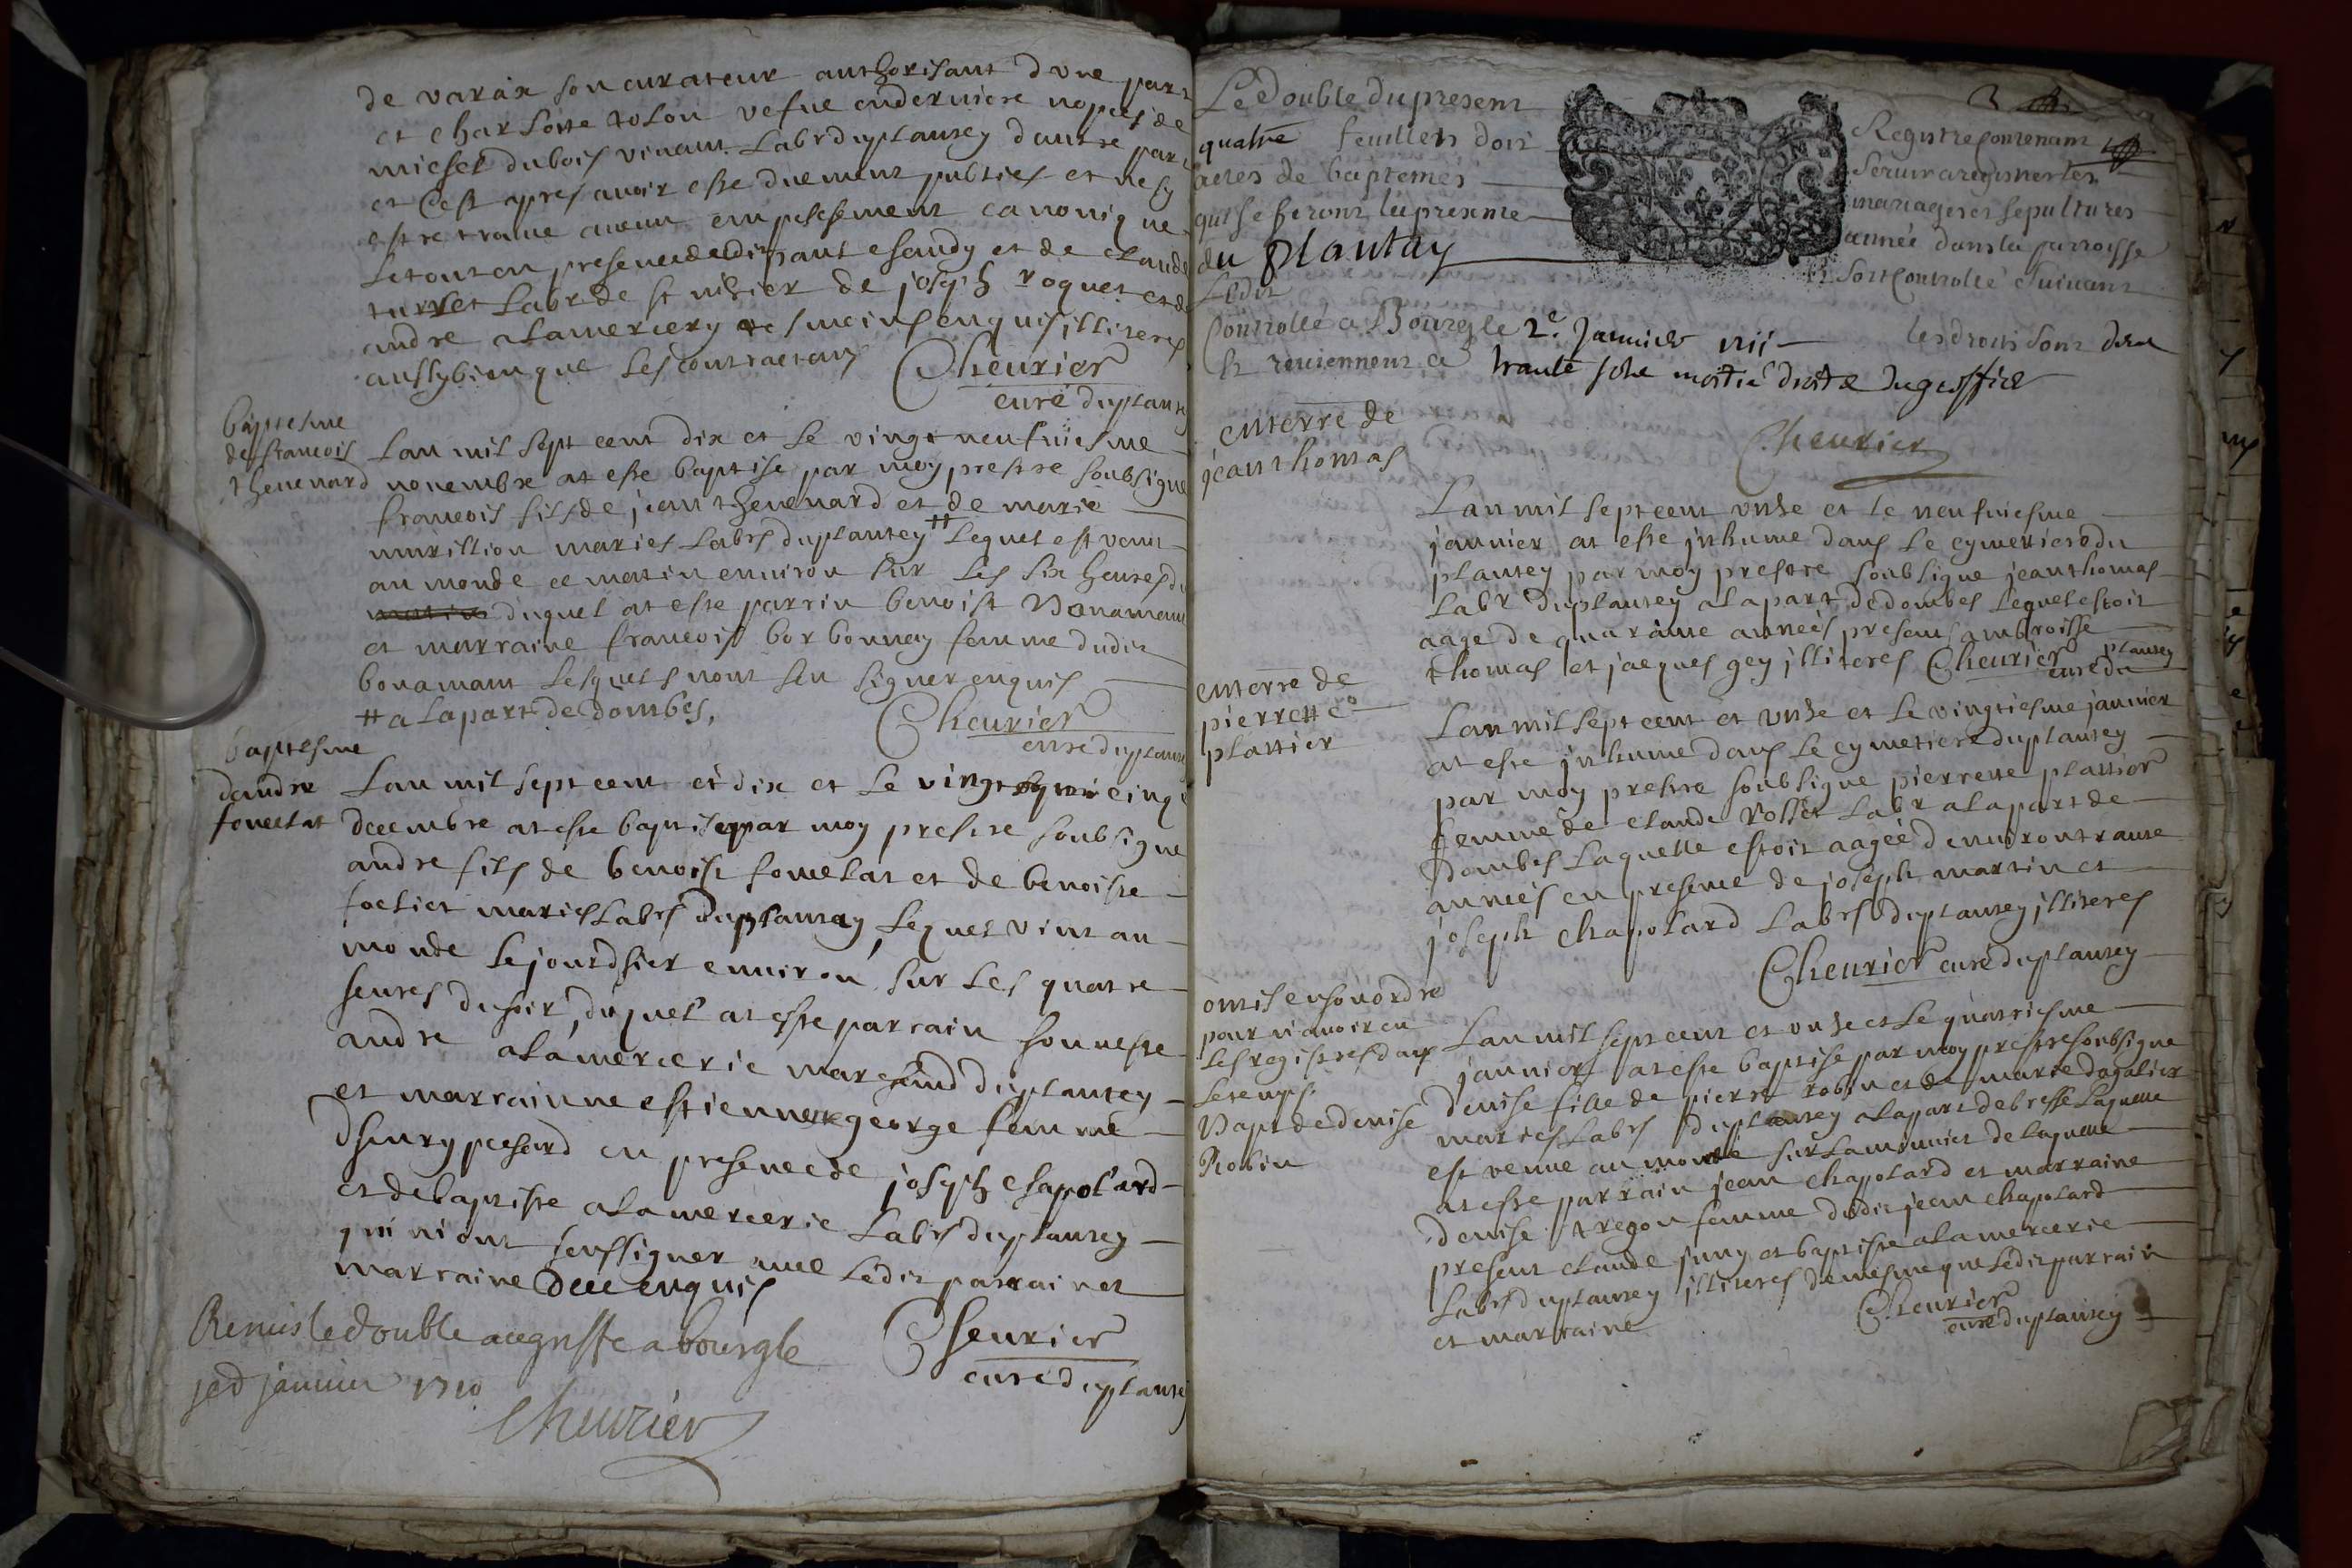 de varax son curateur authorisant dune part
et Charlotte tolon vefue en derniere nopces de
michel dubois vivant Labr duplantey dautre part
et cest apres avoir este duement publies et ne sy
estre trouue aucun empeschement canonique
le tout en presence dudit paul chandy et de claude
turret Labr de st nisier de joseph roquet et de
andre alamercery tesmoins enquis illiteres
aussy bien que les contractans Cheurier
curé duplantey
baptesme
de francois
thevenard
Lan mil sept cent dix et le vingt neufuiesme
novembre at este baptise par moy prestre soubsigne
francois fils de jean thevenard et de marie
murillion maries Labrs duplantey # lequel est venu
au monde ce matin environ sur les six heures du
duquel at este parrin benoist Bonamant
et marraine francois borbonnay femme dudit
bonamant lesquels nont seu signer enquis
# a la part de dombes, Cheurier
curé duplantey
baptesme
dandre
fouclat
Lan mil sept cent et dix et le vingt cinq
decembre at este baptise par moy prestre soubsigne
andre fils de benoist fouclat et de benoiste
maries Labrs duplantay, lequel vint au
monde le jourdhier environ sur les quatre
heures du soir, duquel at este parrain honneste
andre alamercerie marchand duplantey
et marrainne estiennere george femme
dhenry pechard en presence de joseph chapolard
et de baptiste alamercerie Labrs duplantey
qui niont seu signer avec ledit parrain et
marraine enquis
Cheurier
curé duplantey
Remis le double au greffe a bourg le
janvier 1710
Cheurier
Le Double du present
Registre contenant
quatre feuillets doit
servir a registrer les
actes de baptemes
mariages et sepultures
qui se feront la presente
année dans la parroisse
du plantay
Et sort Controllé suivant
Ledit
Controllé a Bourg le 2e Janvier
les droits sont
Et reviennent a trante sols moitié droit du greffier
Cheurier
enterre de
jean thomas
Lan mil sept cent unze et le neufuiesme
janvier at este inhume dans le cymetiere du
plantey par moy prestre soubsigne jean thomas
Labr duplantey a la part de dombes lequel estoit
aage de quarante annees presens ambroisse
thomas et jacques gey illiteres Cheurier curé du
plantey
enterre de
pierrette
plattier
Lan mil sept cent et unze et le vingtiesme janvier
at este inhume dans le cymetiere duplantey
par moy prestre soubsigne pierrette plattier
femme de claude Rosset Labr a la part de
dombes laquelle estoit aagée denviron trante
annees en presence de joseph martin et
joseph chapolard Labrs duplantey illiteres
Cheurier curé duplantey
omis en son ordre
pour niavoir eu
les registres dans
le temps.
Bapt de denise
Robin
Lan mil sept cent et unze et le quatriesme
janvier at este baptise par moy prestre soubsigne
denise fille de pierre robin et de marie dagalier
maries Labrs duplantey a la part de bresse laquelle
est venue au monde sur la minuict de laquelle
at este parrain jean chapolard et marraine
denise tregou femme dudit jean chapolard
present claude juny et baptiste alamercerie
Labrs duplantey illiteres de mesme que ledit parrain
et marraine
Cheurier
curé duplantey